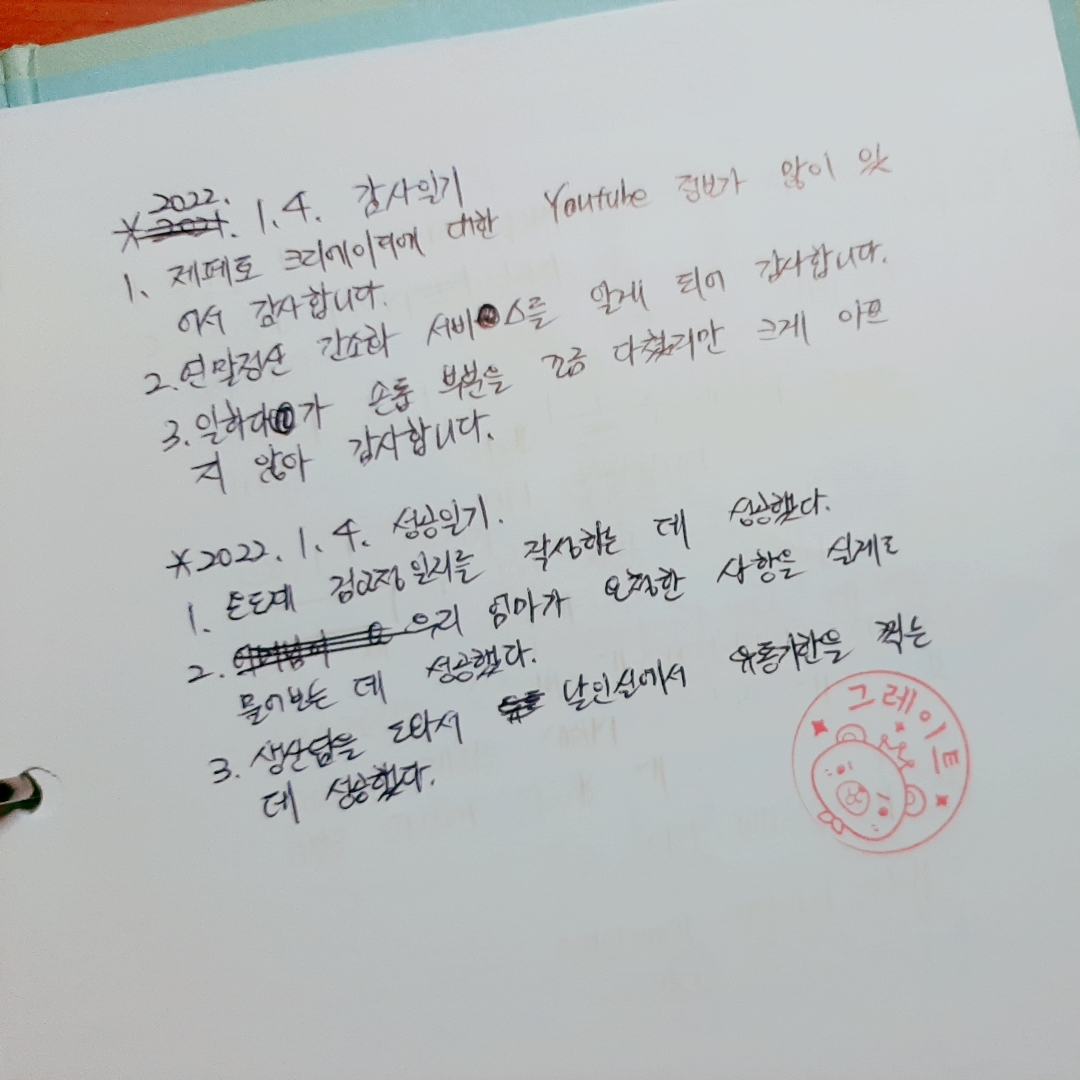 ※2022. 1. 4. 감사일기
1. 제페토 크리에이터에 대한 Youtube 정보가 많이 있
어서 감사합니다.
2. 연말정산 간소화 서비스를 알게 되어 감사합니다.
3. 일하다가 손톱 부분을 조금 다쳤지만 크게 아프
지 않아 감사합니다.
※2022. 1. 4. 성공일기.
1. 작성하는 데 성공했다.
2. 우리 엄마가 요청한 사항을 실제로
물어보는 데 성공했다.
3. 생산팀을 도와서 날인실에서 유통기한을 찍는
데 성공했다.
그레이트